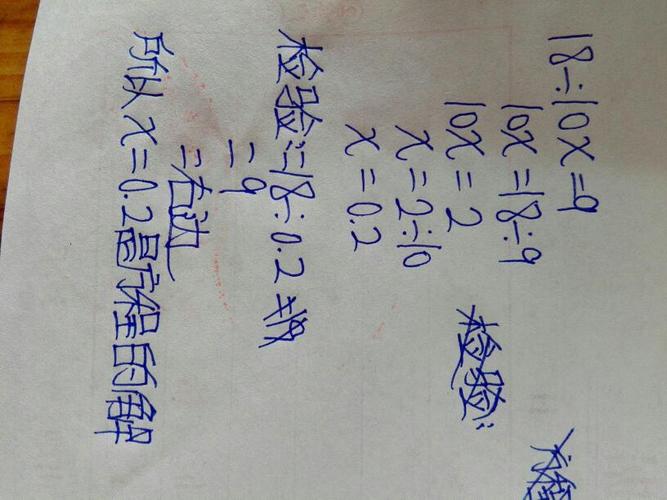 18÷10x=9
10x=18÷9
10x=2
x=2÷10
x=0.2
检验:
检验:=18÷0.2
=9
=右边
所以x=0.2是方程的解